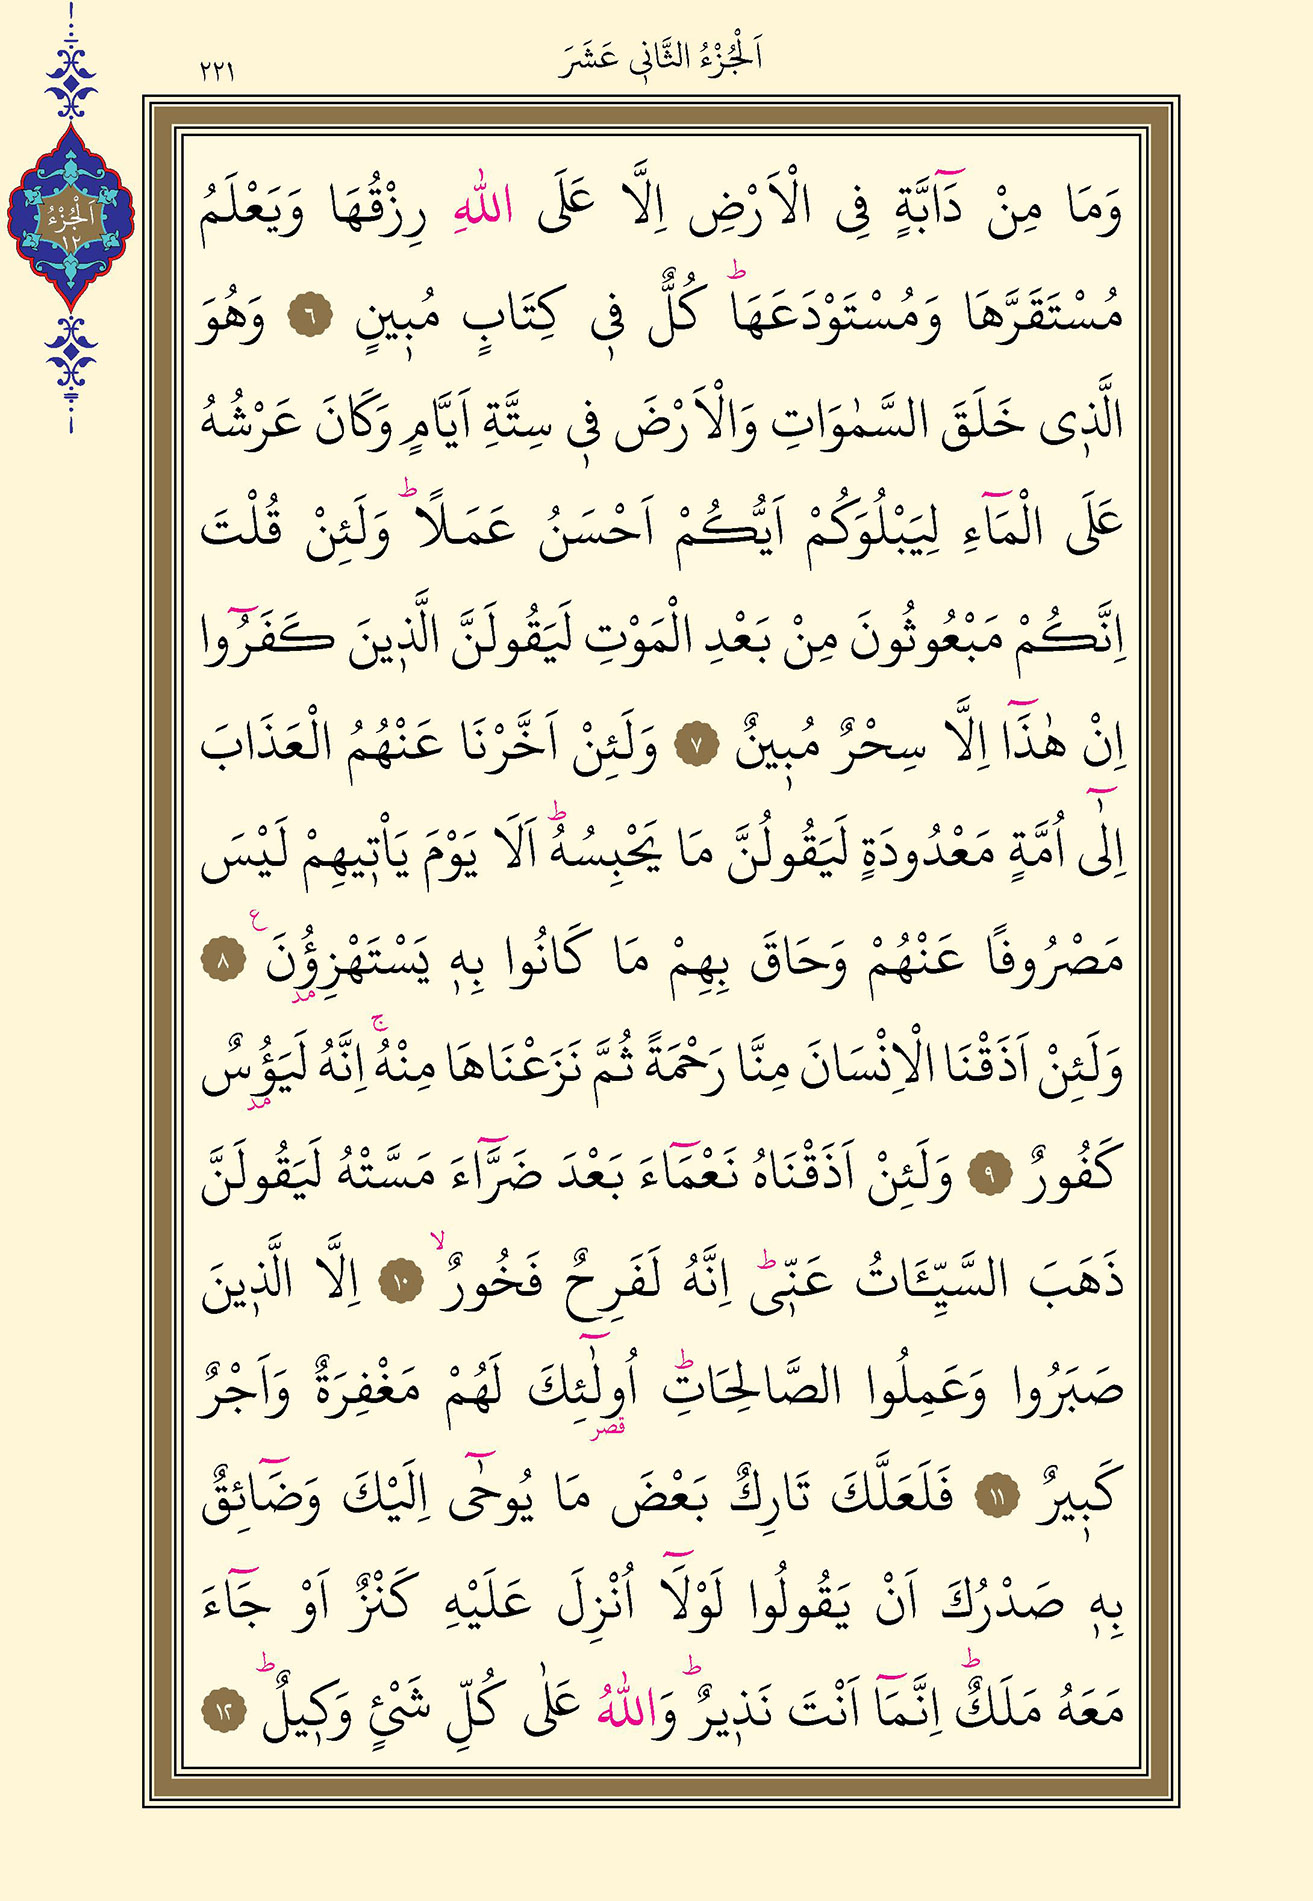 اَلْجُزْءُ الثَّانٖي عَشَرَ
٢٢١
اَلْجُزْءُ
١٢
وَمَا مِنْ دَٓابَّةٍ فِي الْاَرْضِ اِلَّا عَلَى اللّٰهِ رِزْقُهَا وَيَعْلَمُ
مُسْتَقَرَّهَا وَمُسْتَوْدَعَهَاؕ كُلٌّ فٖي كِتَابٍ مُبٖينٍ ﴿٦﴾ وَهُوَ
الَّذٖى خَلَقَ السَّمٰوَاتِ وَالْاَرْضَ فٖي سِتَّةِ اَيَّامٍ وَكَانَ عَرْشُهُ
عَلَى الْمَٓاءِ لِيَبْلُوَكُمْ اَيُّكُمْ اَحْسَنُ عَمَلًاؕ وَلَئِنْ قُلْتَ
اِنَّكُمْ مَبْعُوثُونَ مِنْ بَعْدِ الْمَوْتِ لَيَقُولَنَّ الَّذٖينَ كَفَرُٓوا
اِنْ هٰذَٓا اِلَّا سِحْرٌ مُبٖينٌ ﴿٧﴾ وَلَئِنْ اَخَّرْنَا عَنْهُمُ الْعَذَابَ
اِلٰٓى اُمَّةٍ مَعْدُودَةٍ لَيَقُولُنَّ مَا يَحْبِسُهُؕ اَلَا يَوْمَ يَاْتٖيهِمْ لَيْسَ
مَصْرُوفًا عَنْهُمْ وَحَاقَ بِهِمْ مَا كَانُوا بِهٖ يَسْتَهْزِؤُنَ ع مد ﴿٨﴾
وَلَئِنْ اَذَقْنَا الْاِنْسَانَ مِنَّا رَحْمَةً ثُمَّ نَزَعْنَاهَا مِنْهُۚ اِنَّهُ لَيَؤُسٌ مد
كَفُورٌ ﴿٩﴾ وَلَئِنْ اَذَقْنَاهُ نَعْمَٓاءَ بَعْدَ ضَرَّٓاءَ مَسَّتْهُ لَيَقُولَنَّ
ذَهَبَ السَّيِّـَٔاتُ عَنّٖىؕ اِنَّهُ لَفَرِحٌ فَخُورٌۙ ﴿١٠﴾ اِلَّا الَّذٖينَ
صَبَرُوا وَعَمِلُوا الصَّالِحَاتِؕ اُولٰٓئِكَ قصر لَهُمْ مَغْفِرَةٌ وَاَجْرٌ
كَبٖيرٌ ﴿١١﴾ فَلَعَلَّكَ تَارِكٌ بَعْضَ مَا يُوحٰٓى اِلَيْكَ وَضَٓائِقٌ
بِهٖ صَدْرُكَ اَنْ يَقُولُوا لَوْلَٓا اُنْزِلَ عَلَيْهِ كَنْزٌ اَوْ جَٓاءَ
مَعَهُ مَلَكٌؕ اِنَّمَٓا اَنْتَ نَذٖيرٌؕ وَاللّٰهُ عَلٰى كُلِّ شَيْئٍ وَكٖيلٌؕ ﴿١٢﴾